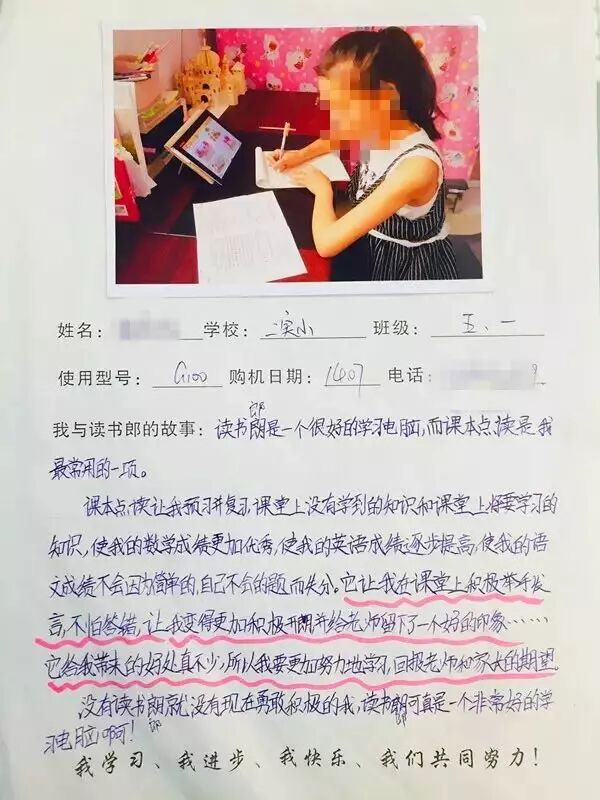 姓名： 学校：二实小 班级：五、一
使用型号：G100 购机日期：1407 电话：
郎
我与读书郎的故事：读书朗是一个很好的学习电脑,而课本点读是我
最常用的一项。
课本点读让我预习并复习,课堂上没有学到的知识和课堂上将要学习的
知识,使我的数学成绩更加优秀,使我的英语成绩逐步提高,使我的语
文成绩不会因为简单的,自己不会的题而失分。它让我在课堂上积极举手发
言,不怕答错,让我变得更加积极开朗,并给老师留下了一个好的印象……
它给我带来的好处真不少,所以我要更加努力地学习,回报老师和家长的期望.
没有读书朗就没有现在勇敢积极的我,读书朗可真是一个非常好的学
郎 郎
习电脑啊!
我学习、我进步、我快乐、我们共同努力！